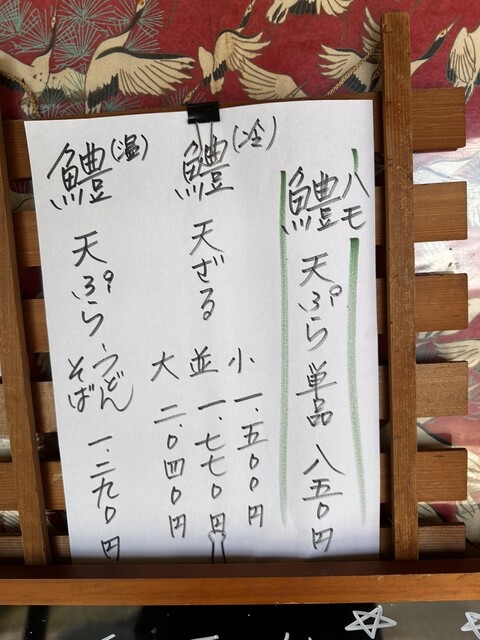 鱧 ハモ 天ぷら単品 八五〇円
鱧(冷) 天ざる
小 一、五〇〇円
並 一、七七〇円
大 二、〇四〇円
鱧(温) 天ぷら うどん そば 一、二九〇円